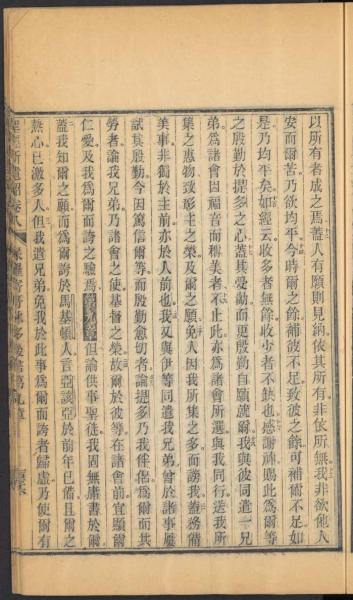 以所有者成之焉蓋人有願則見納依其所有非依所無我非欲他人
安而爾苦乃欲均平今時爾之餘補彼不足致彼之餘可補爾不足如
是乃均平矣如經云收多者無餘收少者不缺也感謝神賜此為爾等
之殷勤於提多之心蓋其受勸而更殷勤自願詣爾我與彼同遣一兄
弟為諸會因福音而稱美者不止此亦為諸會所選與我同行送我所
集之惠物致彰主之榮及爾之願免人因我所集之多而謗我蓋務備
美事非獨於主前亦於人前也我又與伊等同遣我兄弟曾於諸事屢
試其殷勤今因篤信爾等而殷勤愈切者論提多乃我伴侶為爾而共
勞者論我兄弟乃諸會之使基督之榮故爾於彼等在諸會前宜顯爾
仁愛及我為爾而誇之驗焉第九章但論供事聖徒我固無庸書於爾
蓋我知爾之願而為爾誇於馬基頓人言亞該亞於前年已備且爾之
熱心已激多人但我遣兄弟免我於此事為爾而誇者歸虛乃使爾有